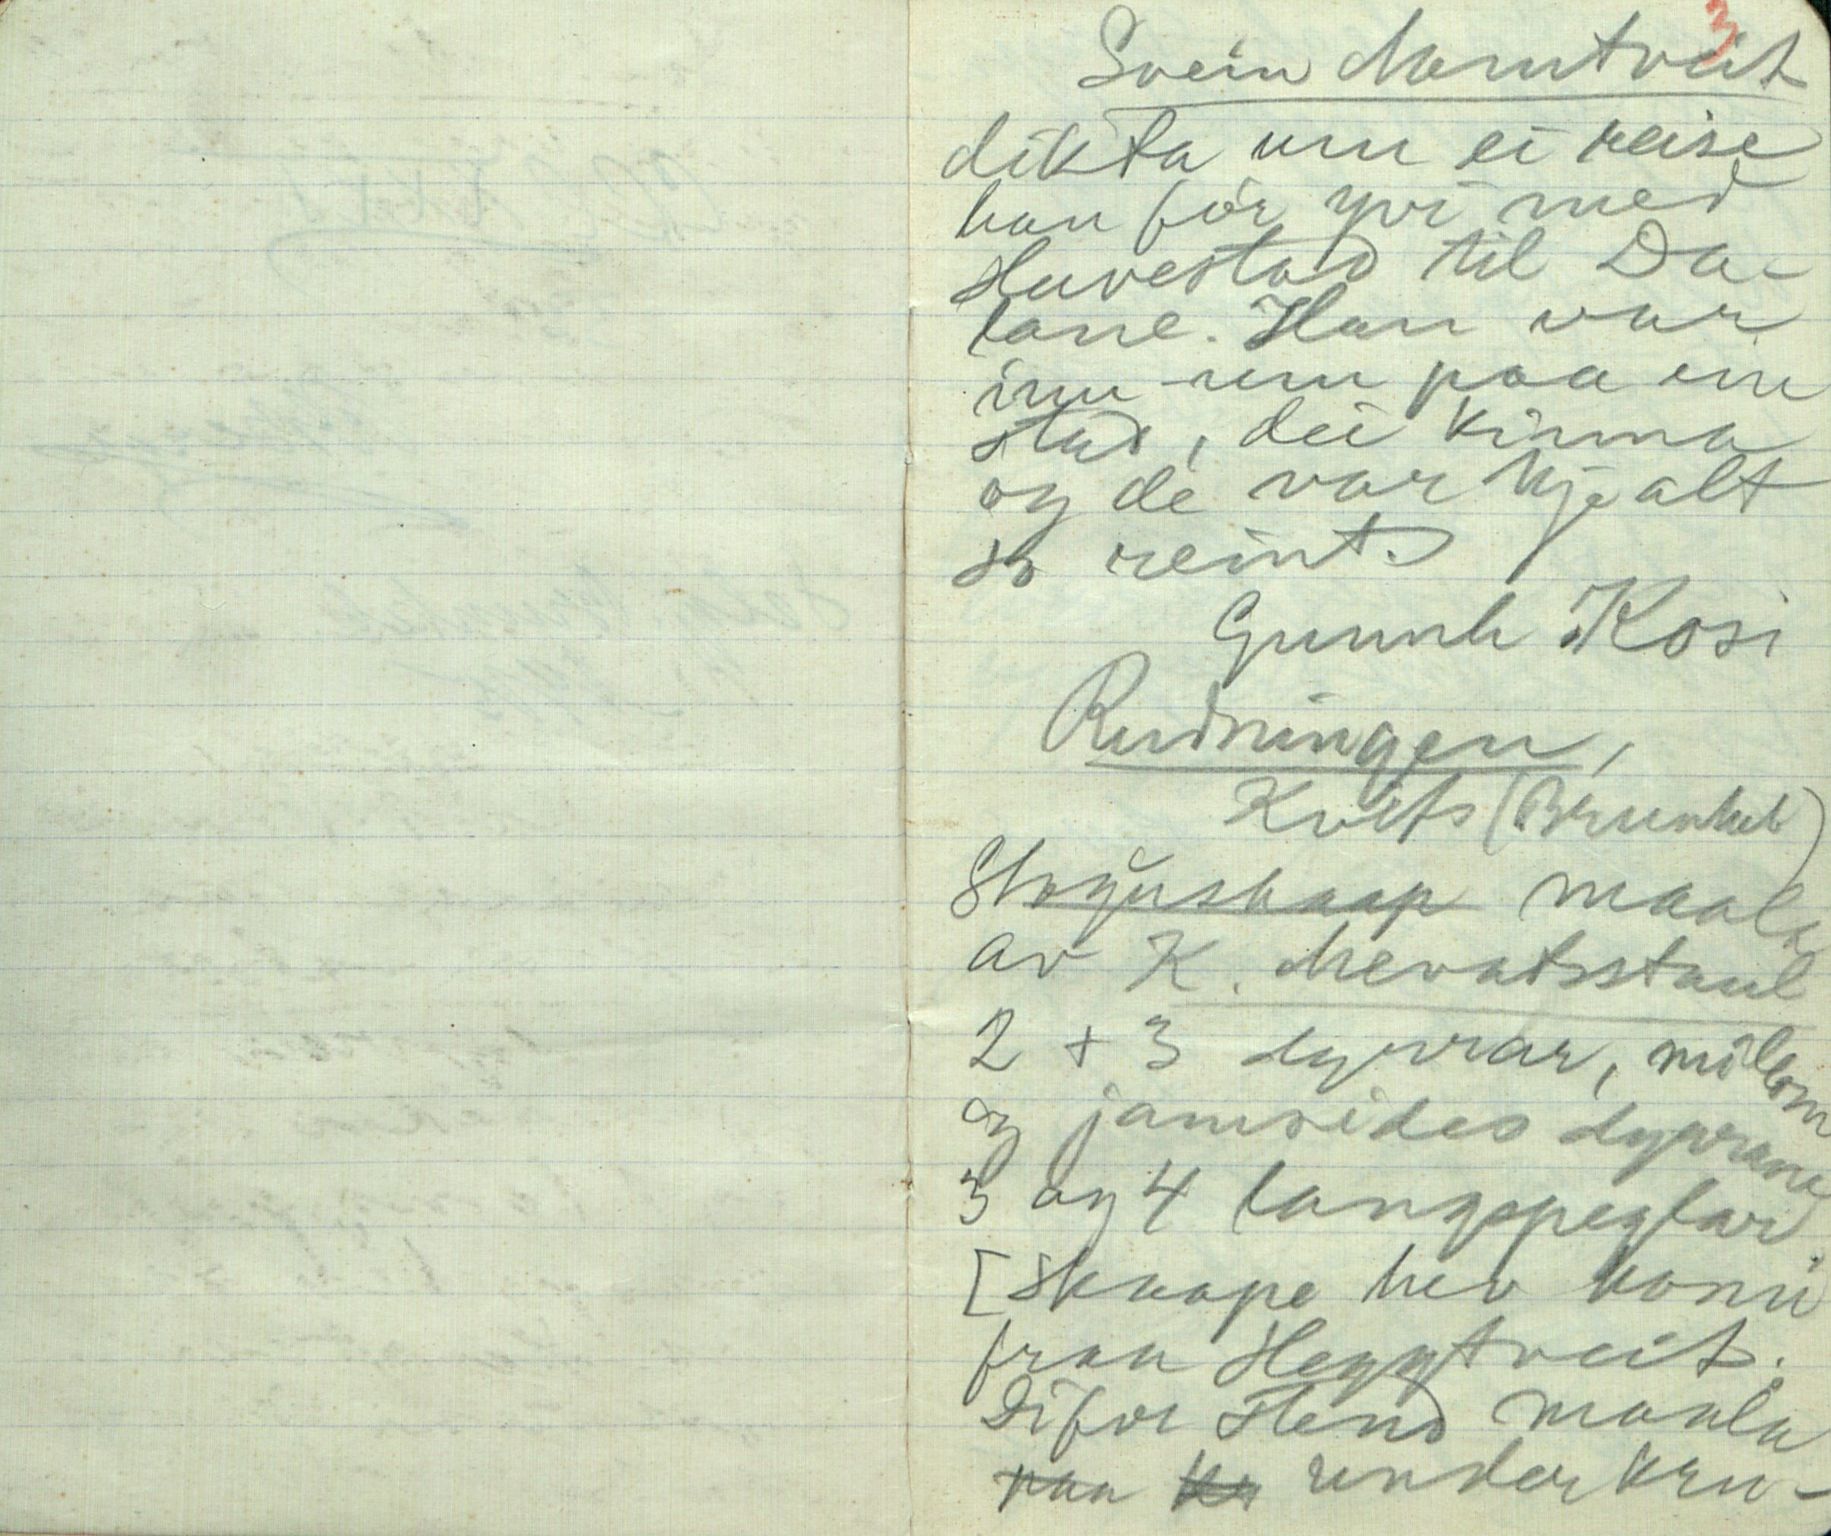 3
Svein Momtveit
dikta um ei reise
han for yvi med
Huvestad til Da-
lane. Han var
inn um paa ein
stad, dei kinna
og de var kje alt
so reint.
Gunnh Kosi
Rudningen,
Kvits (Brunkeb)
Stoguskaap maala
av K. Mevatsstaul
2 + 3 dyrrar, millom
og jamsides dyrrane
3 og 4 langspeglar.
[Skaape hev komi
fraa Heggtveit.
Difor stend maala
paa kr under kru-